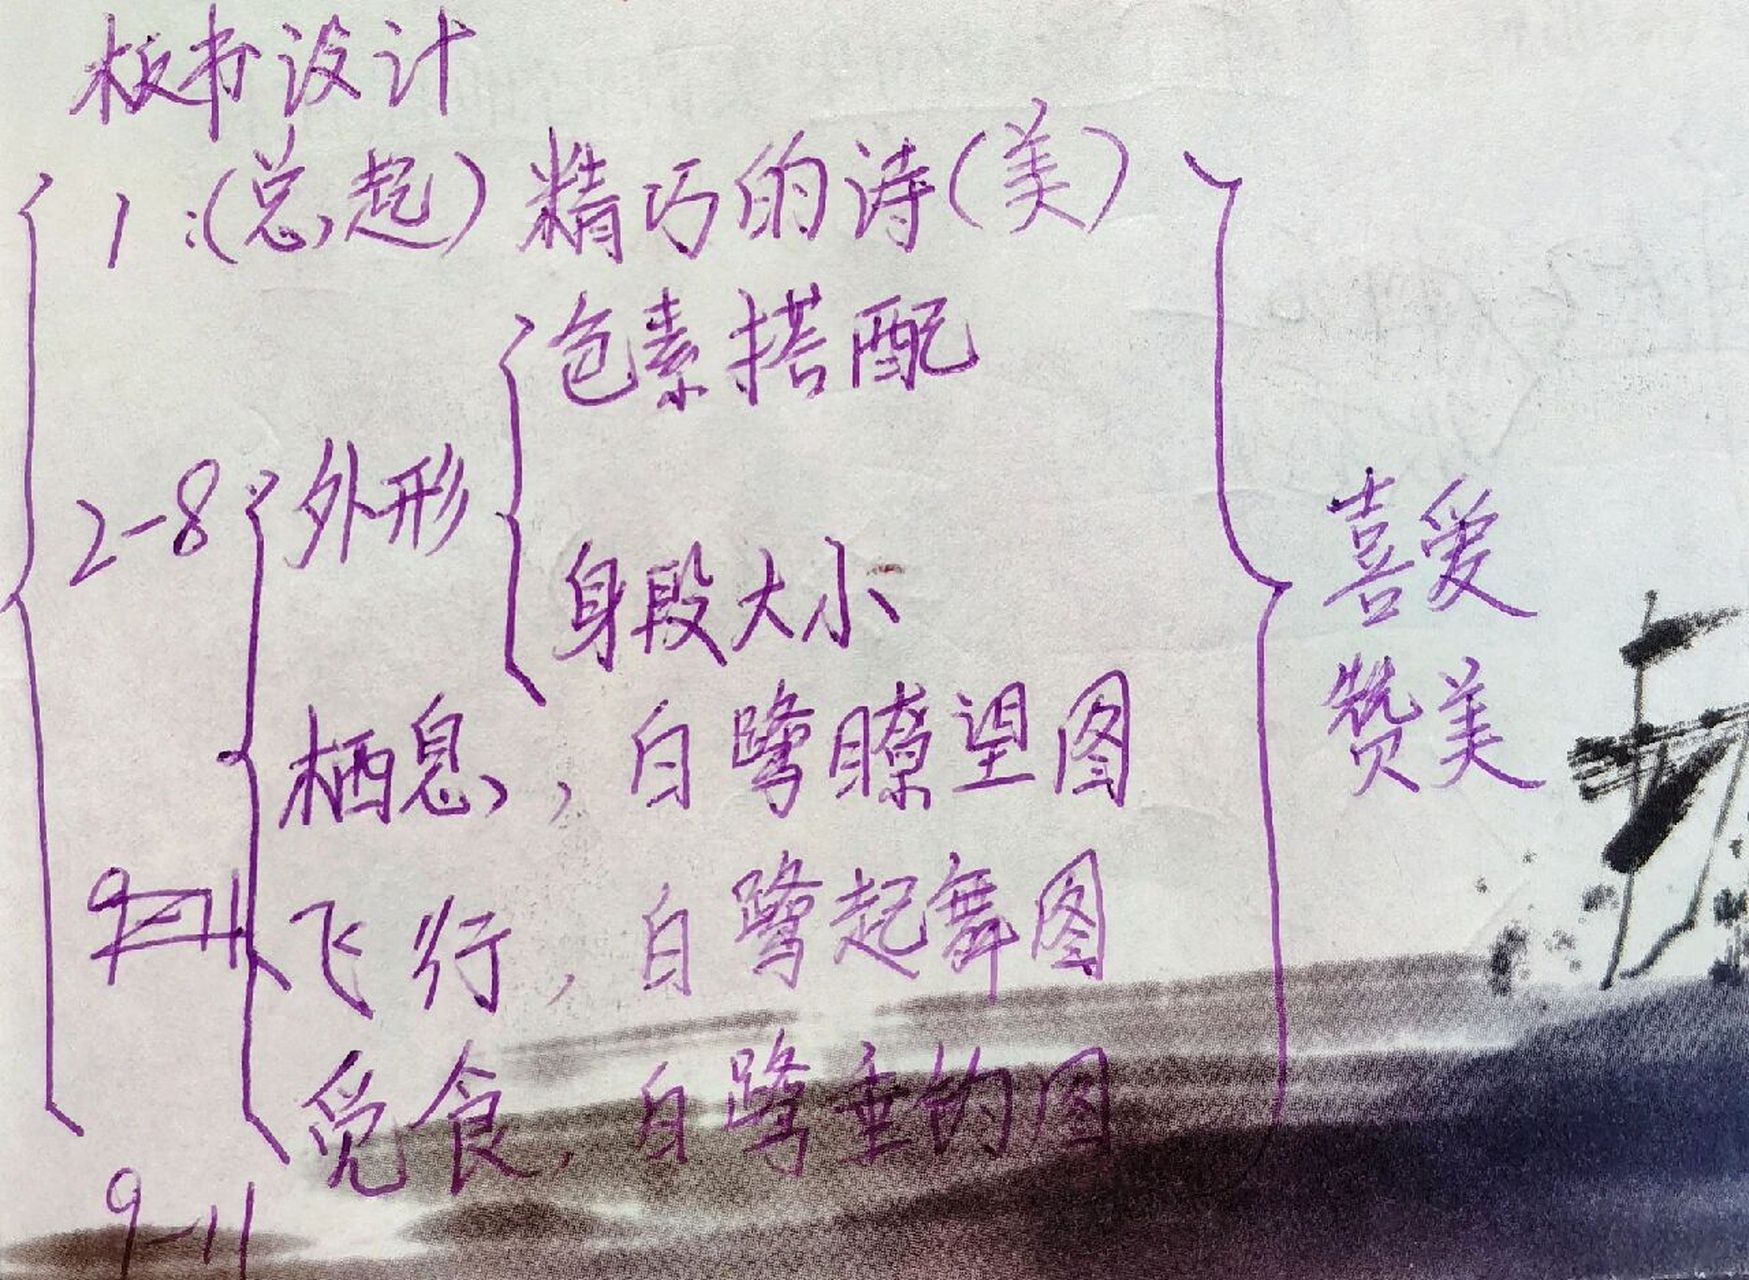 板书设计
1:(总起) 精巧的诗(美)
色素搭配
2-8: 外形
身段大小
喜爱
赞美
栖息, 白鹭瞭望图
9-11 飞行, 白鹭起舞图
觅食, 白鹭垂钓图
9-11